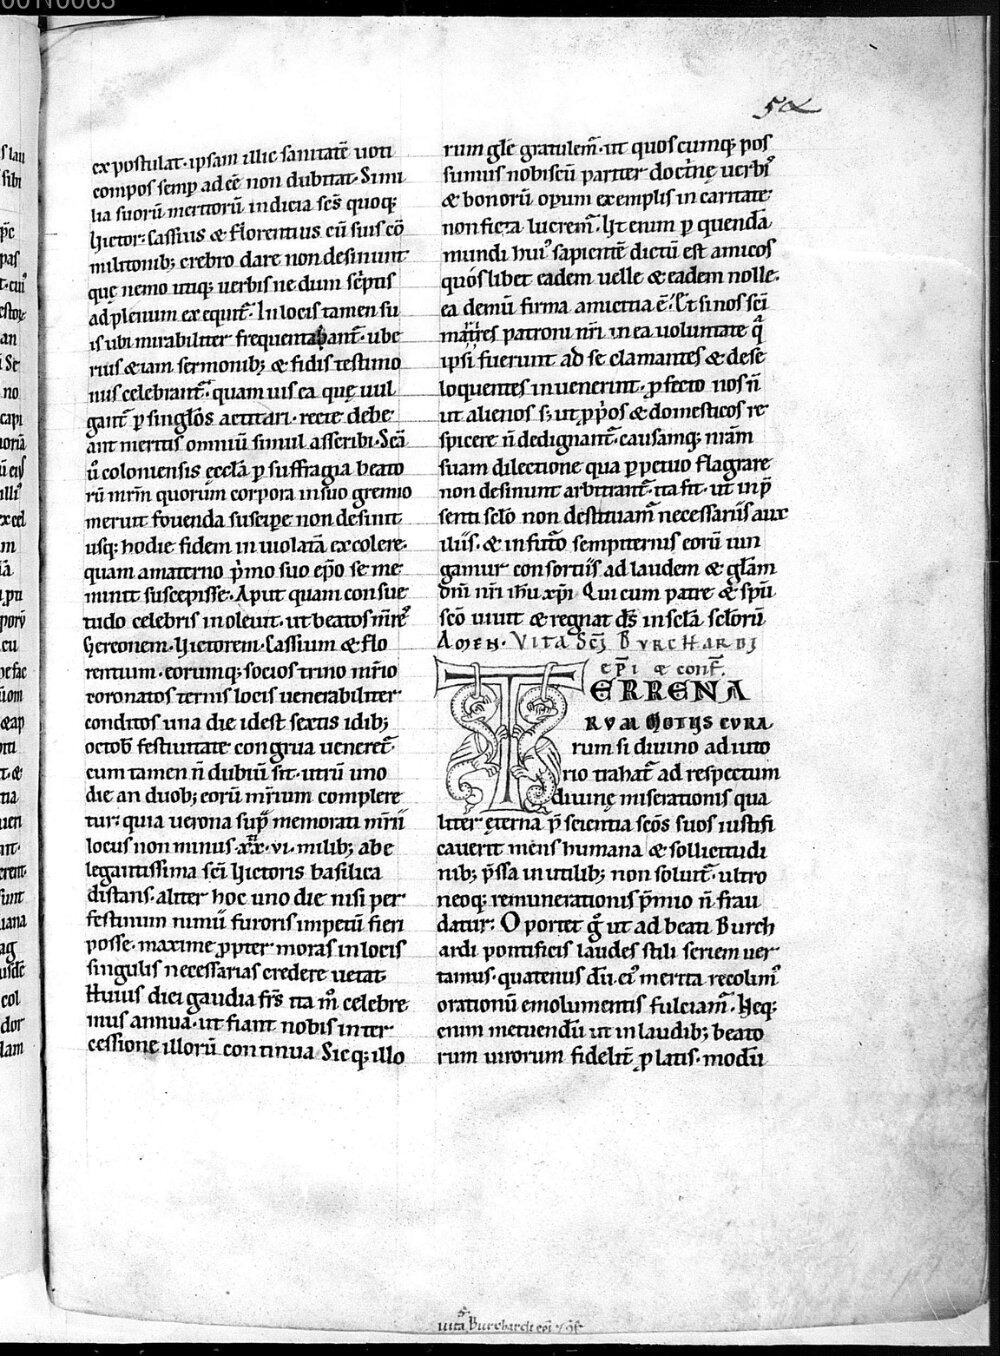 54
expostulat. ipsam illic sanitatē uoti
compos semp adeē non dubitat. Simi
lia suorū meritorū indicia scs̄ quoq;
Victor. Cassius & florentius cū suis cō
militonib; crebro dare non desinunt
quę nemo utiq; uerbis ne dum sc̄ptis
ad plenum exequit̄. In locis tamen su
is ubi mirabiliter frequentabant̄. ube
rius etiam sermonib; & fidis testimo
niis celebrant̄. quam uis ea quę uul
gant̄ p singl̄os actitari. recte debe
ant meritis omniū simul asscribi. Scā
ū coloniensis ęccl̄a p suffragia beato
rū mr̄m quorum corpora in suo gremio
meruit fouenda suscipe non desinit
usq; hodie fidem inuiolatā excolere.
quam a materno p̄mo suo ep̄o se me
minit suscepisse. Aput quam consue
tudo celebris inoleuit. ut beatos mr̄e
Gereonem. Victorem. Cassium & flo
rentium. eorumq; socios trino mr̄io
coronatos ternis locis uenerabiliter
conditos una die id est sextis idib;
octob̄ festiuitate congrua ueneret̄.
cum tamen n̄ dubiū sit. utrū uno
die an duob; eorū mr̄ium complere
tur. quia uerona sup̄ memorati mr̄ii
locus non minus .xx.vi. milib; abe
legantissima sc̄i Victoris basilica
distans. aliter hoc uno die nisi per
festinum nimii furoris impetū fieri
posse. maxime ppter moras in locis
singulis necessarias credere uetat.
Huius diei gaudia frs̄ ita m̊ celebre
mus annua. ut fiant nobis inter
cessione illorū continua Sicq; illo
rum glē gratulem̄. ut quoscumq; pos
sumus nobiscū pariter doct̄nę uerbis
& bonorū opum exemplis in caritate
non ficta lucrem̄. Vt enim p quendā
mundi hui' sapientē dictū est amicos
quoslibet eadem uelle & eadem nolle.
ea demū firma amicitia ē. Et si nos sc̄i
mr̄es patroni nr̄i in ea uoluntate q̄
ipsi fuerunt ad se clamantes & de se
loquentes inuenerint. pfecto nos n̄
ut alienos s; ut pp̄os & domesticos re
spicere n̄ dedignant̄. causamq; nr̄am
suam dilectione qua ppetuo flagrare
non desinunt arbitrant̄. ita fit. ut in p̄
senti sclo non destituam̄ necessariis aux
iliis. & in futo sempiternis eorū iun
gamur consortiis ad laudem & glām
dn̄i nr̄i ihu xpi. Qui cum patre & spū
scō uiuit & regnat ds̄ in scl̄a scl̄orū
AMEN. VITA SCI BVRCHARDI
EPI & conf.
TERRENA
RVM MOTIIS CVRA
rum si diuino adiuto
rio trahat̄ ad respectum
diuinę miserationis qua
liter ęterna p̄scientia scōs suos iustifi
cauerit mens humana & sollicitudi
nib; p̄ssa inutilib; non soluit̄. ultro
neoq; remunerationis p̄mio n̄ frau
datur. Oportet g̊ ut ad beati Burch
ardi pontificis laudes stili seriem uer
tamus. quatenus dū ei' merita recolim'
orationū emolumentis fulciam̄. Neq;
enim metuendū ut in laudib; beato
rum uirorum fidelit̄ platis. modū
5.
uita Burchardi epi & cf